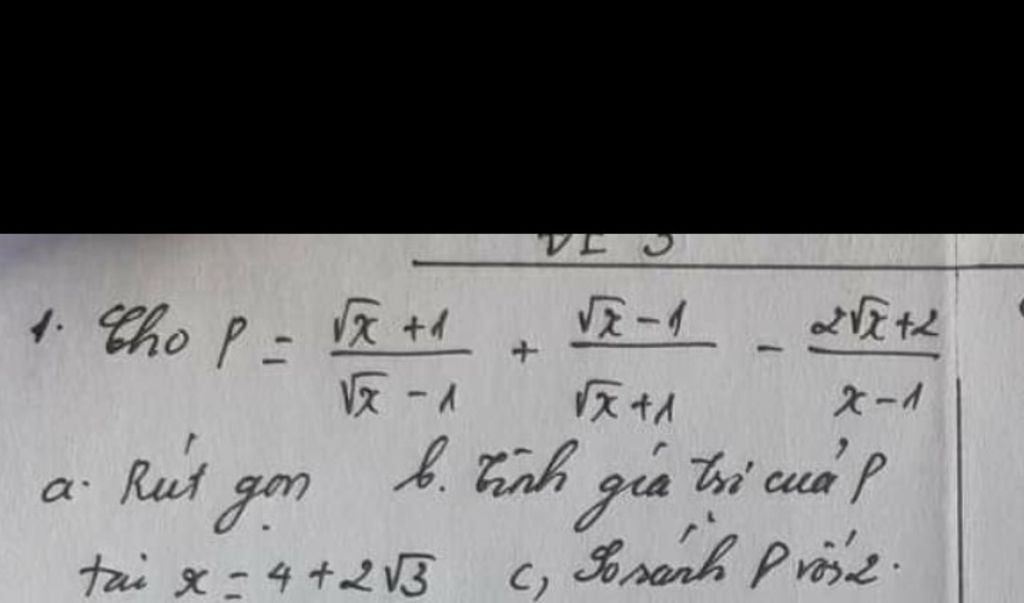 1. Cho P = \frac{\sqrt{x}+1}{\sqrt{x}-1} + \frac{\sqrt{x}-1}{\sqrt{x}+1} - \frac{2\sqrt{x}+2}{x-1}
a. Rút gọn b. Tính giá trị của P
tại x = 4 + 2\sqrt{3} c, So sánh P với 2.